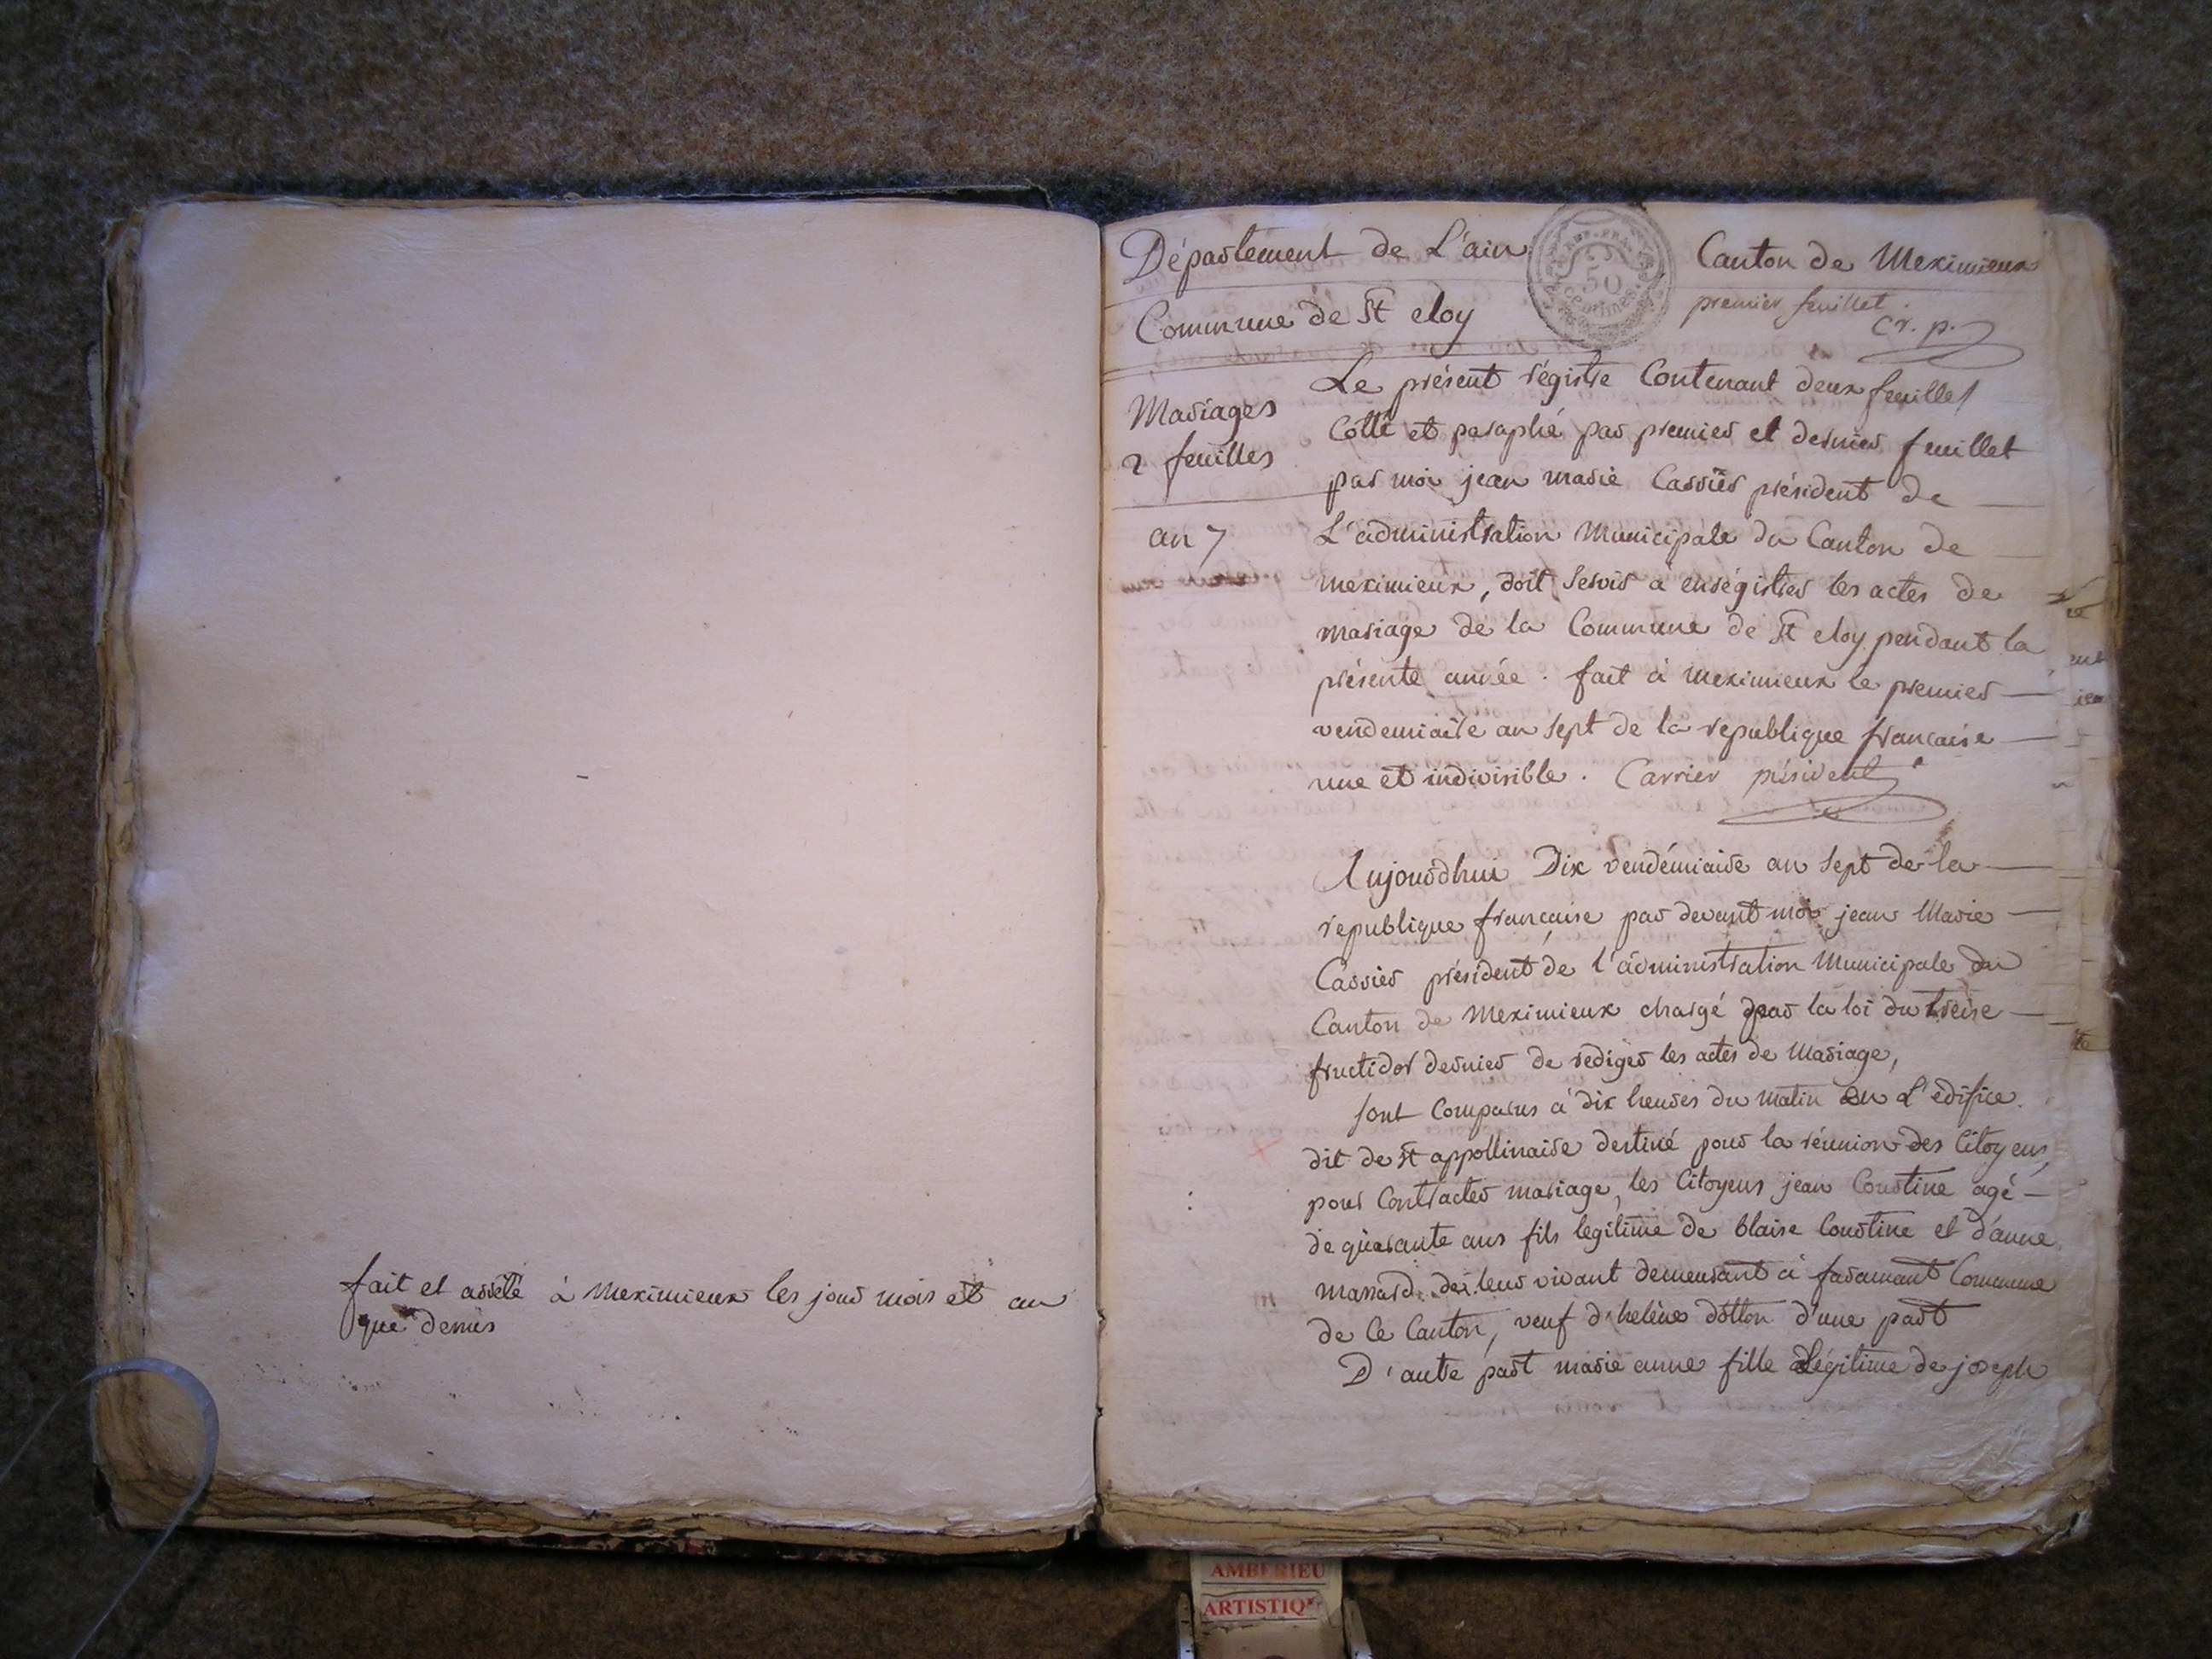 fait et arrêté à Meximieux les jour mois et an
que dessus
Département de L'ain
Canton de Meximieux
50
centimes
premier feuillet.
cr. p.
Commune de St eloy
Mariages
2 feuilles
an 7
Le présent régistre Contenant deux feuillet
Cotté et paraphé par premier et dernier feuillet
par moi jean marie Carrier président de
L'administration Municipale du Canton de
meximieux, doit servir à enrégistrer les actes de
mariage de la Commune de St eloy pendant la
présente année. fait à meximieux le premier
vendemiaire an sept de la republique francaise
une et indivisible. Carrier président
Aujourdhui Dix vendémiaire an sept de la
republique française par devant moi jean Marie
Carrier président de l'administration Municipale du
Canton de Meximieux chargé par la loi du treize
fructidor dernier de rediger les actes de Mariage,
sont comparus à dix heures du matin en L'edifice
dit de St appollinaire destiné pour la réunion des Citoyens,
pour Contracter mariage, les Citoyens jean Courtine agé
de quarante ans fils legitime de blaise Courtine et d'anne
massard de leur vivant demeurant à faramant Commune
de Ce Canton, veuf d'helène dotton d'une part
D'autre part marie anne fille Légitime de joseph
AMBERIEU
ARTISTIQ